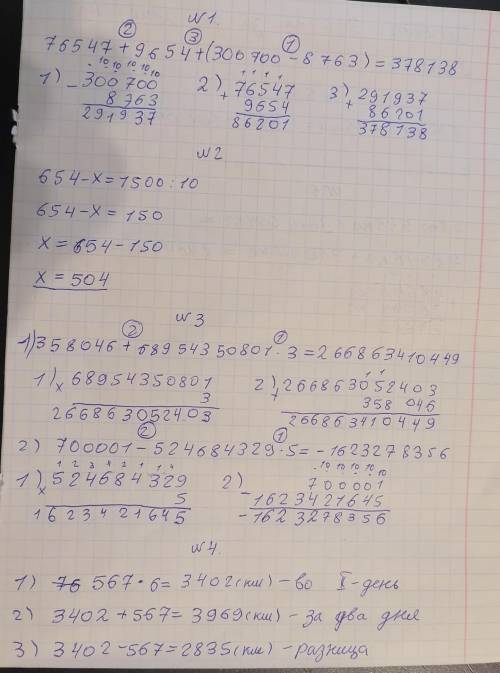 №1.
② ③ ①
76547 + 9654 + (300 700 - 8763) = 378138
1) - 300 700 2) + 76547 3) + 291937
8763 9654 86201
291937 86201 378138
№2
654-x=1500:10
654-x=150
x=654-150
x=504
№3
② ①
1) 358046 + 68954350801 · 3 = 266863410449
1) x 68954350801 2) + 266863052403
3 358 046
266863052403 266863410449
② ①
2) 700001 - 524684329 · 5 = -1623278356
1) x 524684329 2) - 700001
5 1623421645
1623421645 -1623278356
№4.
1) 567 · 6 = 3402 (км) - во II-день
2) 3402 + 567 = 3969 (км) - за два дня
3) 3402 - 567 = 2835 (км) - разница